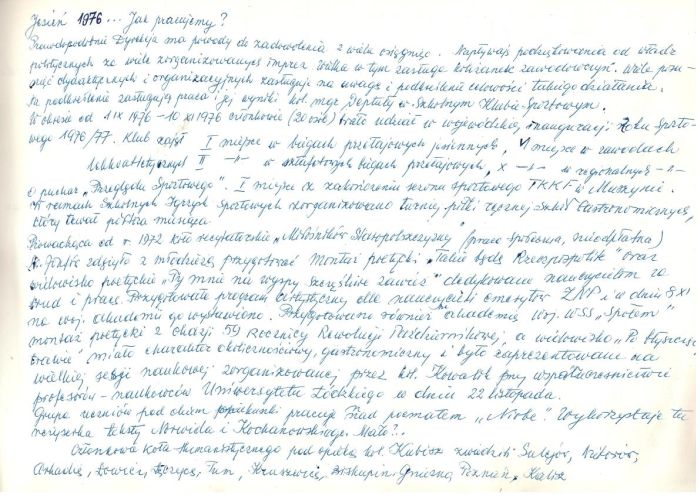 Jesień 1976... Jak pracujemy?
Prawdopodobnie Dyrekcja ma powody do zadowolenia z wielu osiągnięć. Napływają podziękowania od władz
politycznych za wiele zorganizowanych imprez wielka w tym zasługa koleżanek zawodowczyń. Wiele
dydaktycznych i organizacyjnych zasługuje na uwagę i podkreślenie celowość takiego działania.
Na podkreślenie zasługują praca i jej wyniki kol. mgr Deputy w Szkolnym Klubie Sportowym.
W okresie od 1 IX 1976 - 10 XI 1976 członkowie (20 osób) brało udział w wojewódzkiej inauguracji Roku Sporto-
wego 1976/77. Klub zajął I miejsce w biegach przełajowych jesiennych, V miejsce w zawodach
lekkoatletycznych II -"- w sztafetowych biegach przełajowych, X -"- w regionalnych -"-
o puchar "Przeglądu Sportowego". I miejsce z zakończenia sezonu sportowego TKKF w
W ramach Szkolnych Igrzysk Sportowych zorganizowano turniej piłki ręcznej Szkół Gastronomicznych,
który trwał półtora miesiąca.
Prowadząca od r. 1972 koło recytatorskie "Miłośników Staropolszczyzny" (praca społeczna, nieodpłatna)
K. zdążyła z młodzieżą przygotować montaż poetycki "Takie będą Rzeczpospolite" oraz
widowisko poetyckie "Ty mnie na wyspy szczęśliwe zawieź" dedykowane nauczycielom za
trud i pracę. Przygotowała program artystyczny dla nauczycieli emerytów ZNP i w dniu 8 XI
na woj. akademii go wystawiono. Przygotowano również akademię woj. WSS "Społem"
montaż poetycki z okazji 59 Rocznicy Rewolucji Październikowej, a widowisko "Po
" miało charakter okolicznościowy, gastronomiczny i było zaprezentowane na
wielkiej sesji naukowej zorganizowanej przez kol. Kowalik przy współuczestnictwie
profesorów - naukowców Uniwersytetu Łódzkiego w dniu 22 listopada.
Grupa uczniów pod okiem opiekunki pracuje nad poematem "Niobe". Wykorzystuje tu
reżyserka teksty Norwida i Kochanowskiego. Mało?..
Członkowie koła humanistycznego pod opieką kol. Kubisz zwiedzili Sulejów, Nieborów,
Arkadię, Łowicz, Łęczycę, Tum, Kruszwicę, Biskupin, Gniezno, Poznań, Kalisz